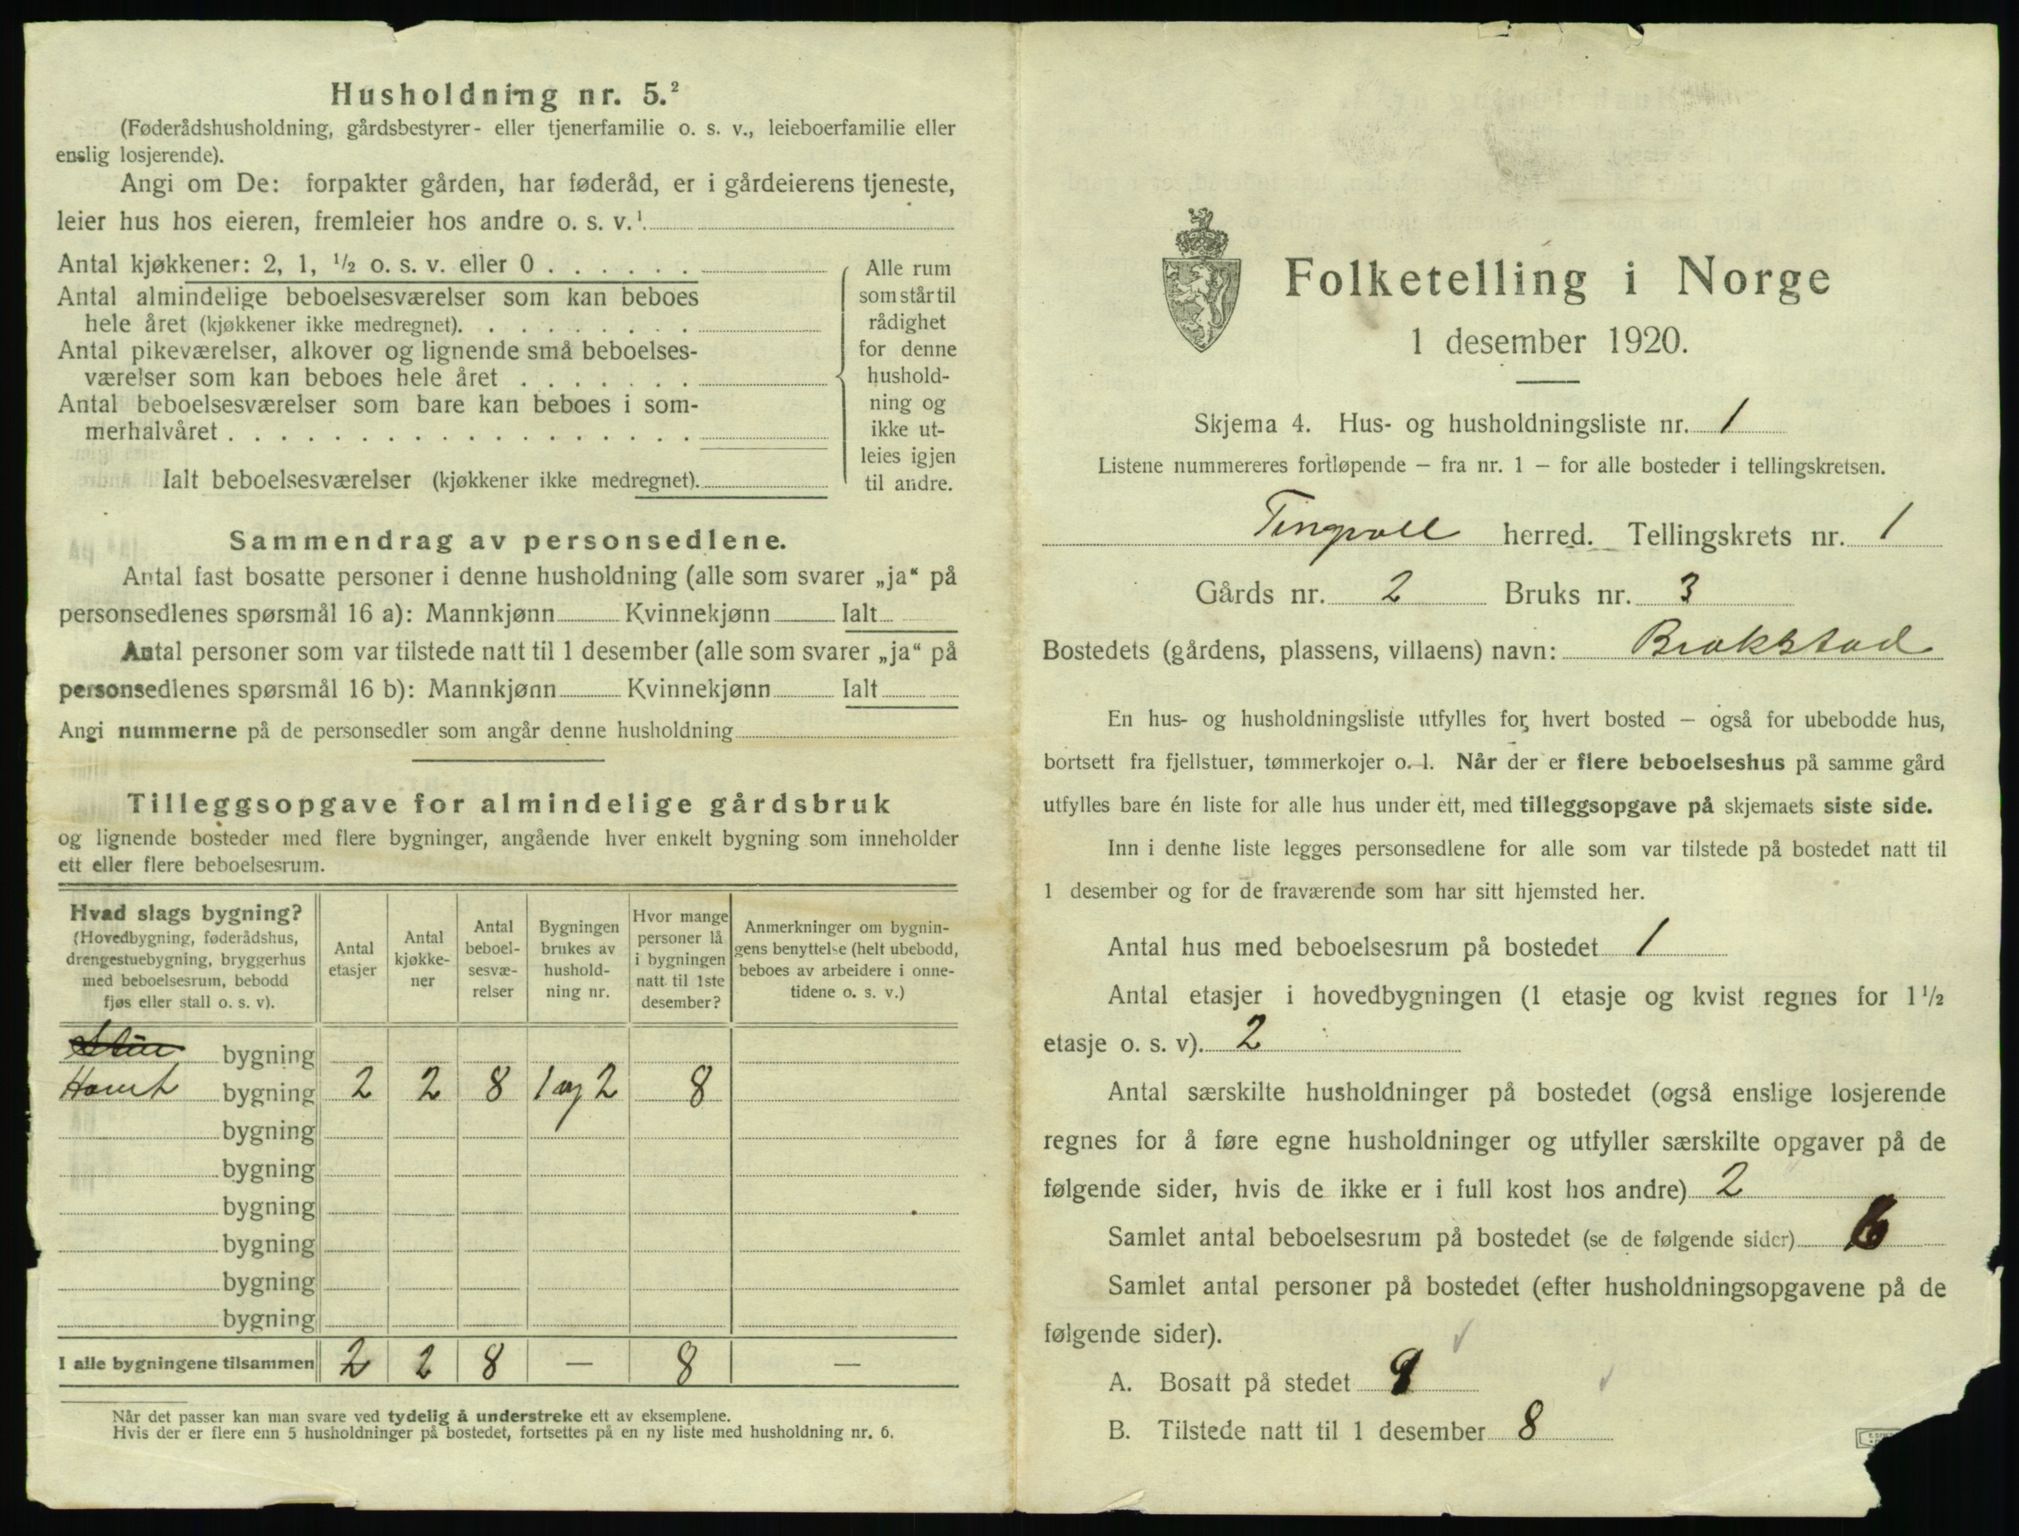 Husholdning nr. 5.²
(Føderådshusholdning, gårdsbestyrer- eller tjenerfamilie o. s. v., leieboerfamilie eller
enslig losjerende).
Angi om De: forpakter gården, har føderåd, er i gårdeierens tjeneste,
leier hus hos eieren, fremleier hos andre o. s. v.¹
Antal kjøkkener: 2, 1, ½ o. s. v. eller 0 . . . . . .
Antal almindelige beboelsesværelser som kan beboes
hele året (kjøkkener ikke medregnet). . . . . . . . .
Antal pikeværelser, alkover og lignende små beboelses-
værelser som kan beboes hele året . . . . . . .
Antal beboelsesværelser som bare kan beboes i som-
merhalvåret . . . . . . . . . . . . . . . . . .
Ialt beboelsesværelser (kjøkkener ikke medregnet).
Alle rum
som står til
rådighet
for denne
hushold-
ning og
ikke ut-
leies igjen
til andre.
Sammendrag av personsedlene.
Antal fast bosatte personer i denne husholdning (alle som svarer „ja“ på
personsedlenes spørsmål 16 a): Mannkjønn Kvinnekjønn Ialt
Antal personer som var tilstede natt til 1 desember (alle som svarer „ja“ på
personsedlenes spørsmål 16 b): Mannkjønn Kvinnekjønn Ialt
Angi nummerne på de personsedler som angår denne husholdning
Tilleggsopgave for almindelige gårdsbruk
og lignende bosteder med flere bygninger, angående hver enkelt bygning som inneholder
ett eller flere beboelsesrum.
Hvad slags bygning?
(Hovedbygning, føderådshus,
drengestuebygning, bryggerhus
med beboelsesrum, bebodd
fjøs eller stall o. s. v).
Antal
etasjer
Antal
kjøkke-
ner
Antal
beboel-
sesvæ-
relser
Bygningen
brukes av
hushold-
ning nr.
Hvor mange
personer lå
i bygningen
natt til 1ste
desember?
Anmerkninger om bygnin-
gens benyttelse (helt ubebodd,
beboes av arbeidere i onne-
tidene o. s. v.)
bygning
bygning 2 2 8 1 og 2 8
bygning
bygning
bygning
bygning
bygning
bygning
I alle bygningene tilsammen 2 2 8 — 8 —
Når det passer kan man svare ved tydelig å understreke ett av eksemplene.
Hvis der er flere enn 5 husholdninger på bostedet, fortsettes på en ny liste med husholdning nr. 6.
Folketelling i Norge
1 desember 1920.
Skjema 4. Hus- og husholdningsliste nr. 1
Listene nummereres fortløpende – fra nr. 1 – for alle bosteder i tellingskretsen.
Tingvoll herred. Tellingskrets nr. 1
Gårds nr. 2 Bruks nr. 3
Bostedets (gårdens, plassens, villaens) navn: Brakstad
En hus- og husholdningsliste utfylles for hvert bosted – også for ubebodde hus,
bortsett fra fjellstuer, tømmerkojer o. l. Når der er flere beboelseshus på samme gård
utfylles bare én liste for alle hus under ett, med tilleggsopgave på skjemaets siste side.
Inn i denne liste legges personsedlene for alle som var tilstede på bostedet natt til
1 desember og for de fraværende som har sitt hjemsted her.
Antal hus med beboelsesrum på bostedet 1
Antal etasjer i hovedbygningen (1 etasje og kvist regnes for 1½
etasje o. s. v). 2
Antal særskilte husholdninger på bostedet (også enslige losjerende
regnes for å føre egne husholdninger og utfyller særskilte opgaver på de
følgende sider, hvis de ikke er i full kost hos andre) 2
Samlet antal beboelsesrum på bostedet (se de følgende sider)
Samlet antal personer på bostedet (efter husholdningsopgavene på de
følgende sider).
A. Bosatt på stedet 9
B. Tilstede natt til 1 desember 8